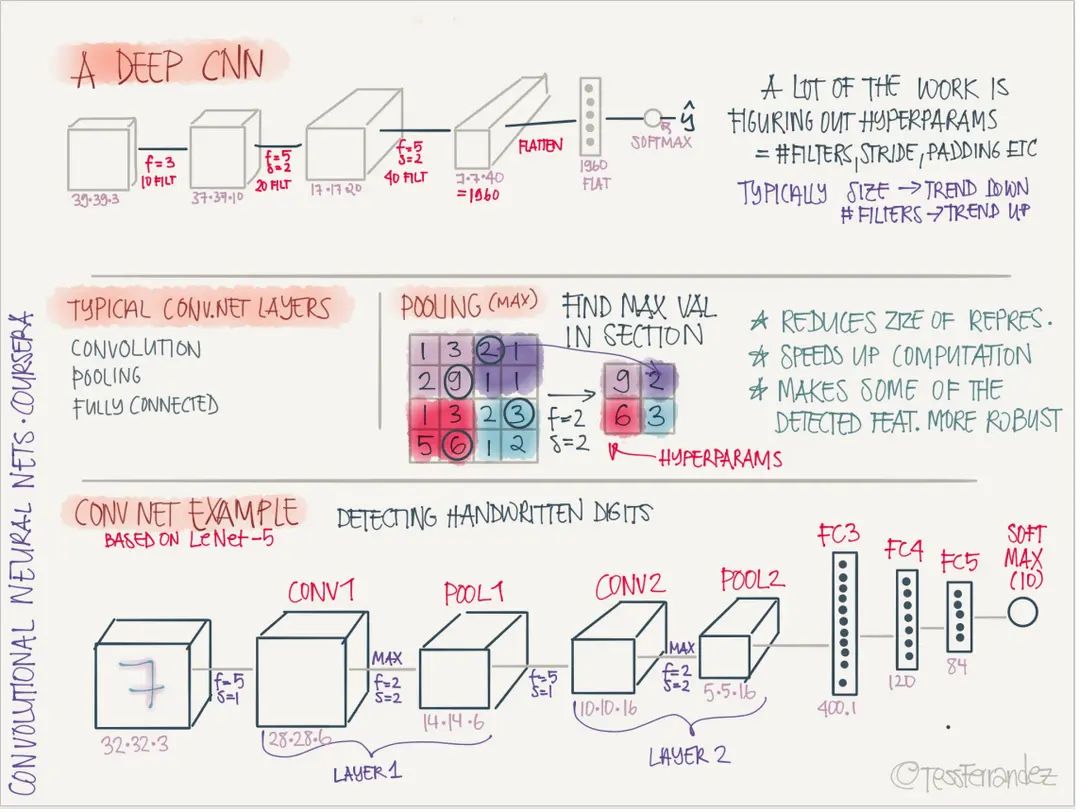 A DEEP CNN
39·39·3
f=3
10 FILT
37·37·10
f=5
s=2
20 FILT
17·17·20
f=5
s=2
40 FILT
7·7·40
=1960
FLATTEN
1960
FLAT
SOFTMAX
ŷ
A LOT OF THE WORK IS
FIGURING OUT HYPERPARAMS
= #FILTERS, STRIDE, PADDING ETC
TYPICALLY SIZE → TREND DOWN
# FILTERS → TREND UP
TYPICAL CONV.NET LAYERS
CONVOLUTION
POOLING
FULLY CONNECTED
POOLING (MAX)
FIND MAX VAL
IN SECTION
1 3 2 1
2 9 1 1
1 3 2 3
5 6 1 2
f=2
s=2
9 2
6 3
HYPERPARAMS
★ REDUCES ZIZE OF REPRES.
★ SPEEDS UP COMPUTATION
★ MAKES SOME OF THE
DETECTED FEAT. MORE ROBUST
CONV NET EXAMPLE
BASED ON LeNet-5
DETECTING HANDWRITTEN DIGITS
7
32·32·3
f=5
s=1
CONV1
28·28·6
MAX
f=2
s=2
POOL1
14·14·6
LAYER 1
f=5
s=1
CONV2
10·10·16
MAX
f=2
s=2
POOL2
5·5·16
LAYER 2
FC3
400.1
FC4
120
FC5
84
SOFT
MAX
(10)
CONVOLUTIONAL NEURAL NETS · COURSERA
©TessFerrandez